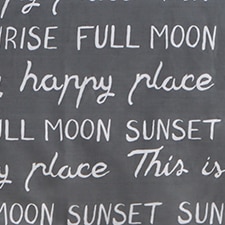 py place
RISE FULL MOON
happy place
ULL MOON SUNSET
y place This is
MOON SUNSET SUN